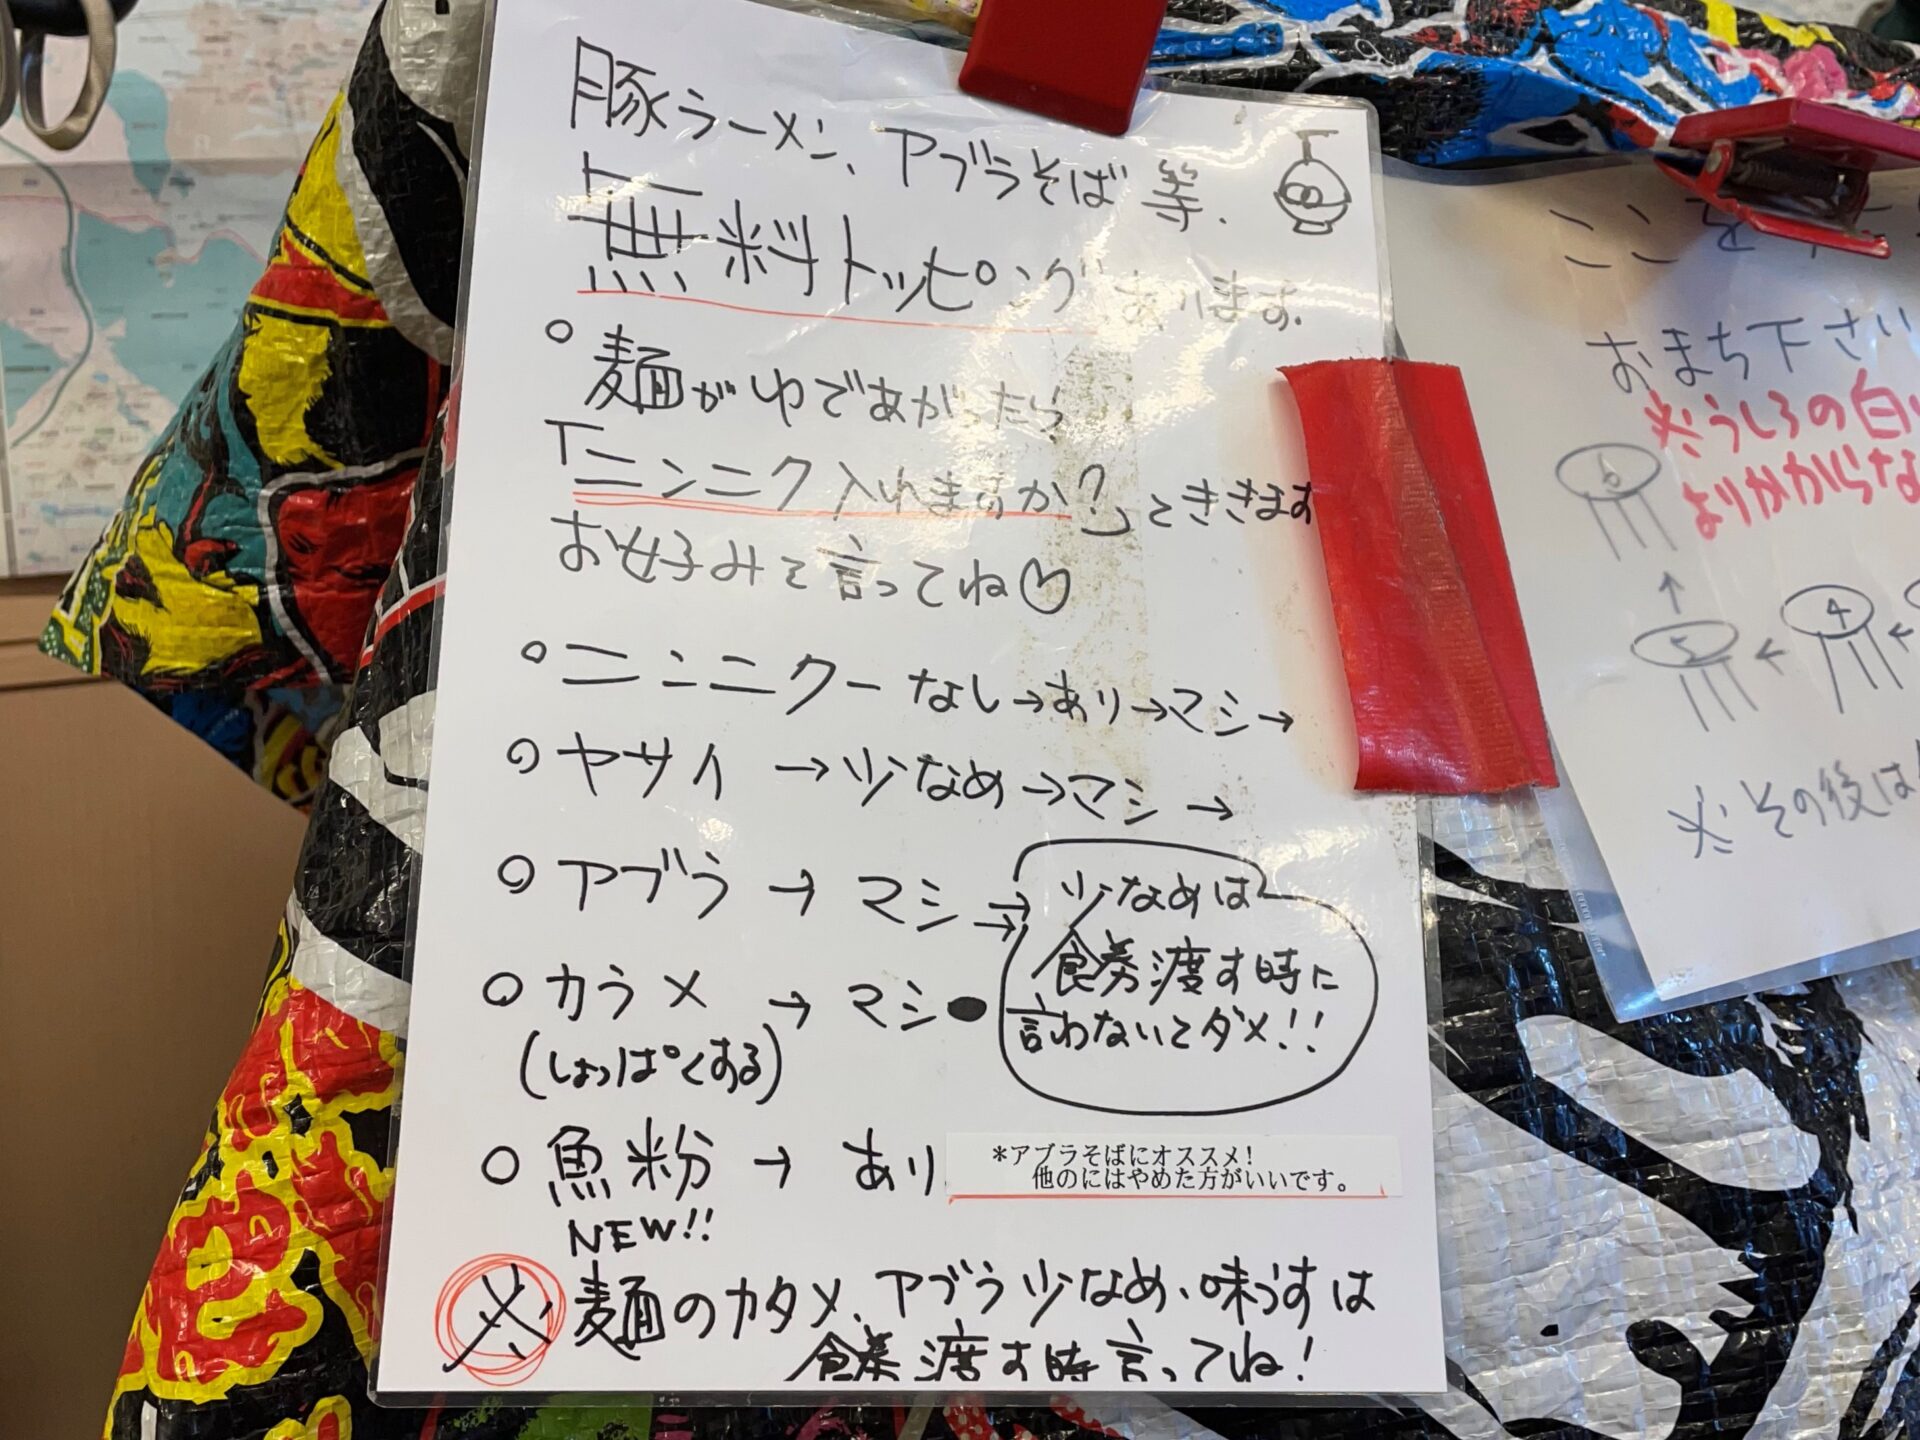 豚ラーメン、アブラそば等、
無料トッピングあります。
○ 麺がゆであがったら
「ニンニク入れますか?」とききます
お好みを言ってね♡
○ ニンニクーなし→あり→マシ→
○ ヤサイ →少なめ→マシ→
○ アブラ → マシ→
少なめは
食券渡す時に
言わないとダメ!!
○ カラメ → マシ●
(しょっぱくする)
○ 魚粉 → あり
*アブラそばにオススメ!
他のにはやめた方がいいです。
NEW!!
※ 麺のカタメ、アブラ少なめ、味うすは
食券渡す時言ってね!
ここを
おまち下さい
※うしろの白
よりかからな
6
↑
5 ← 4 ←
※その後は